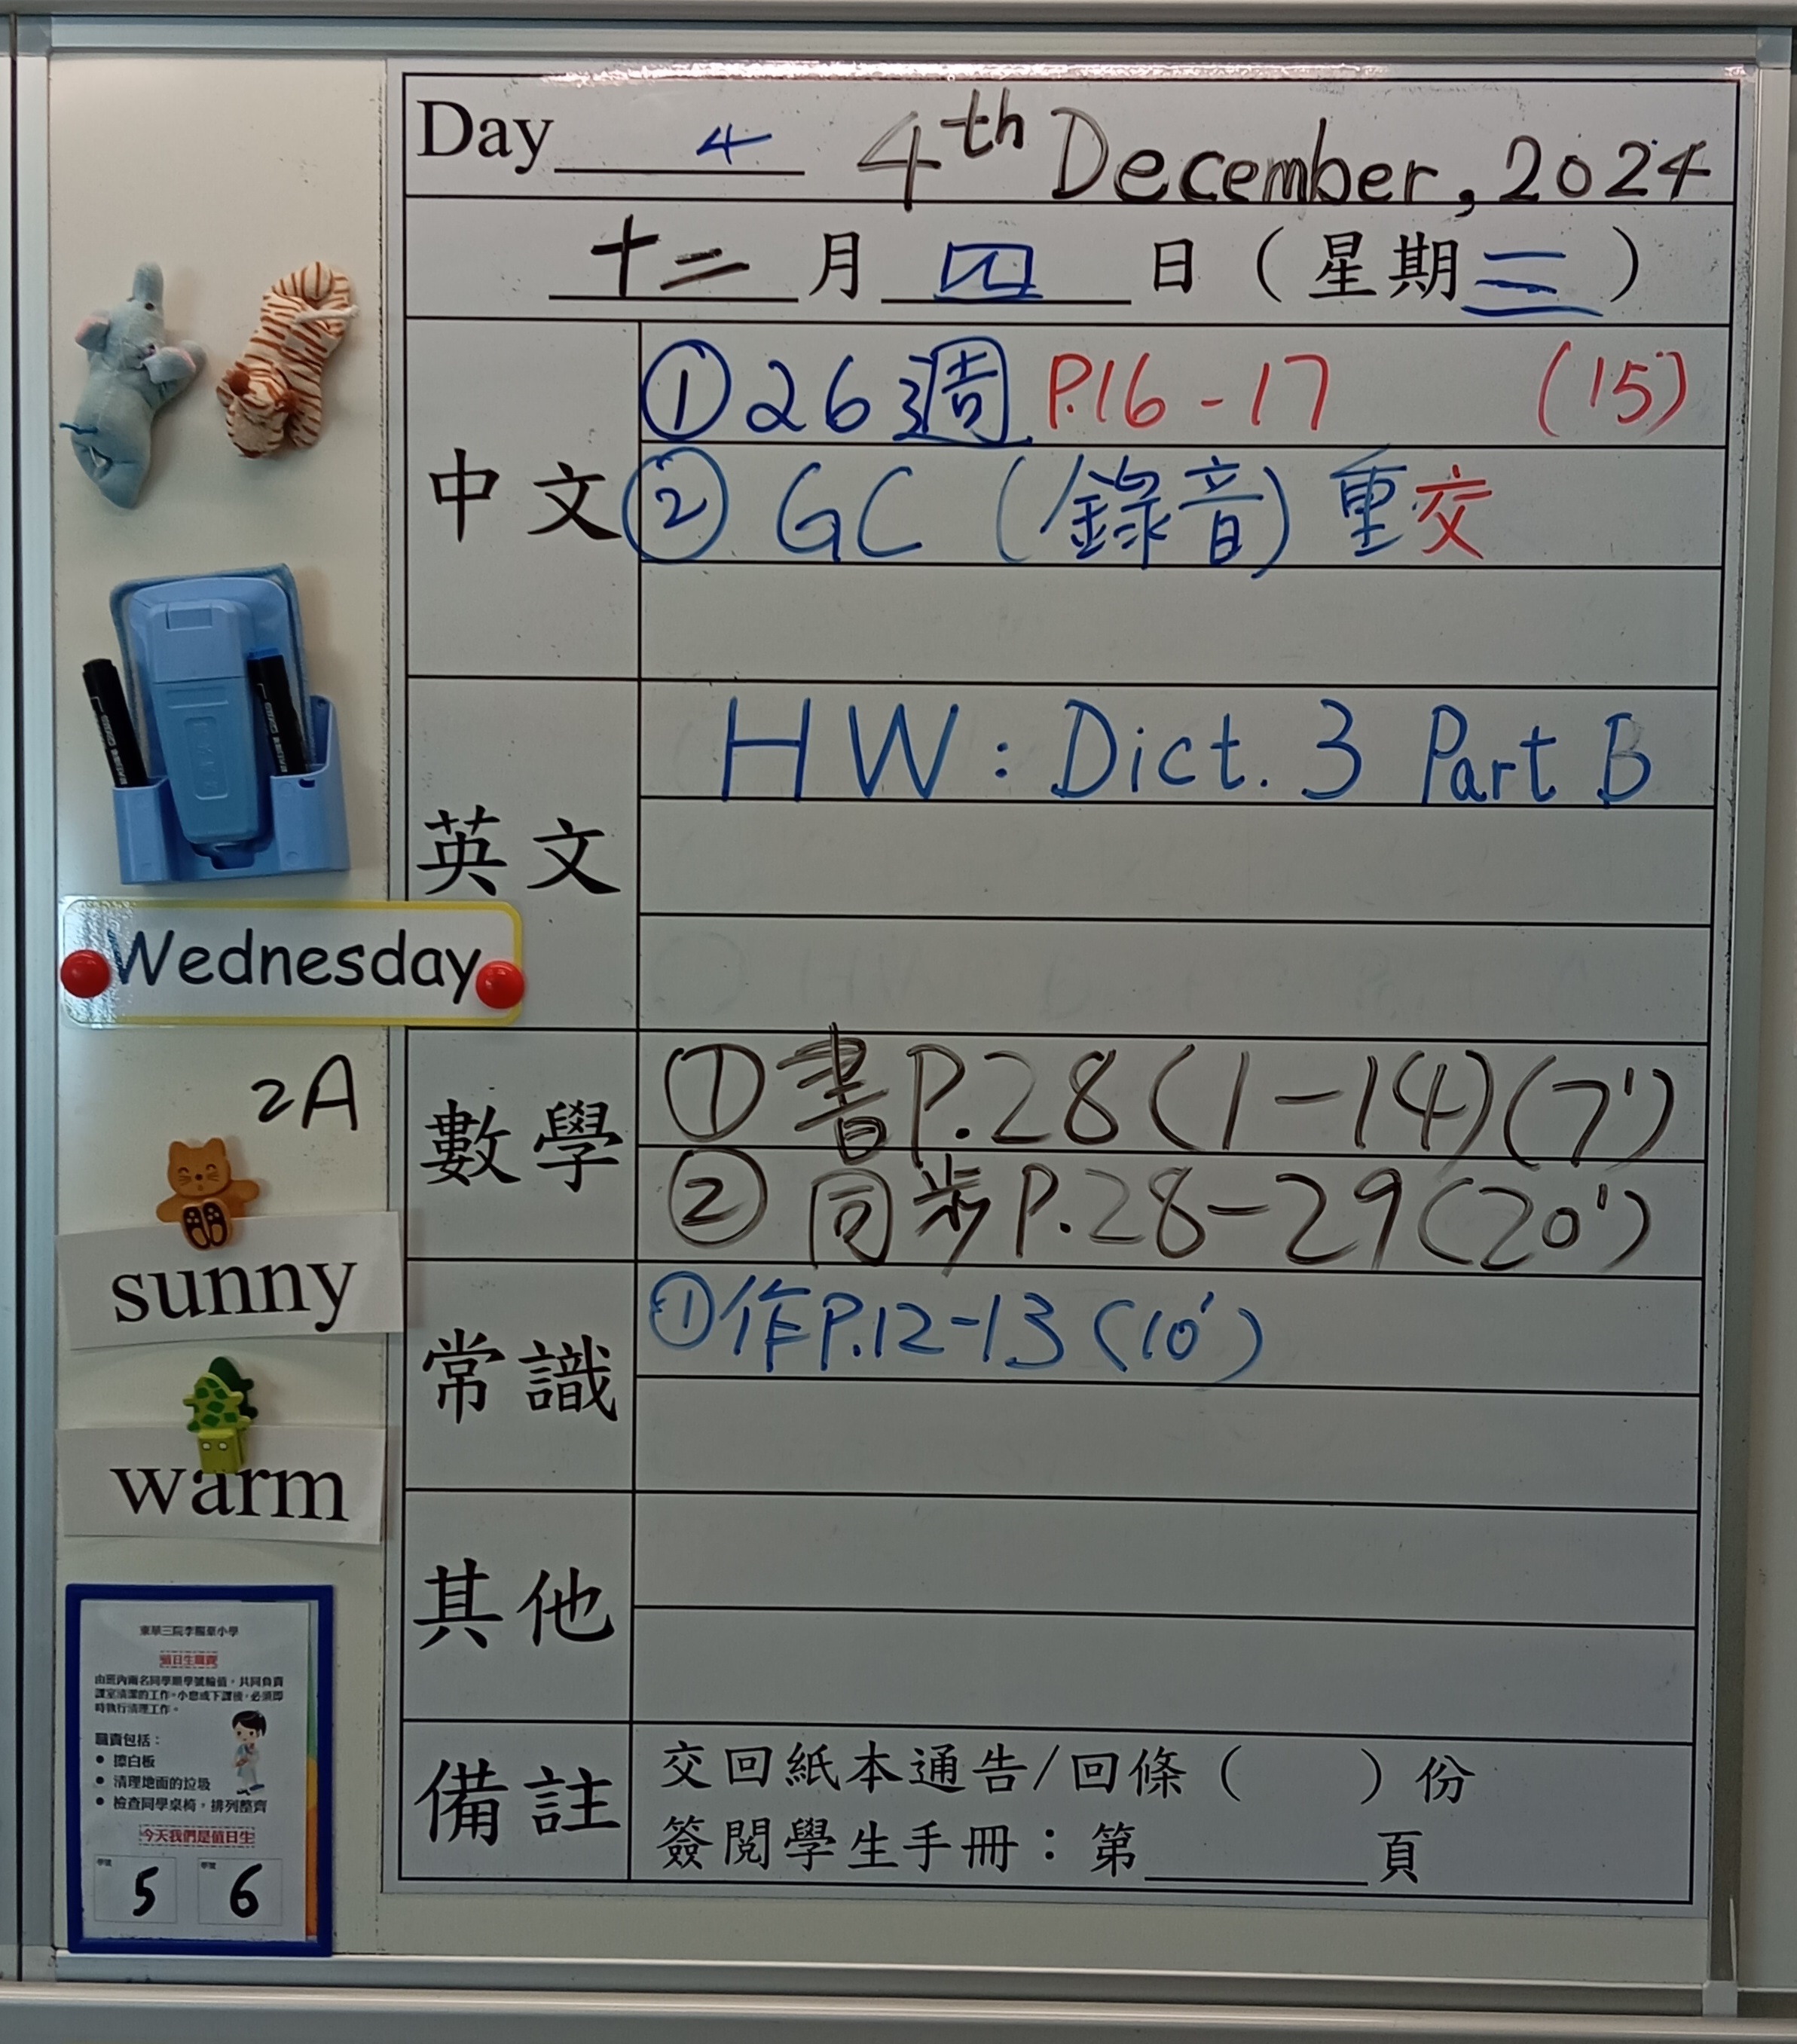 Day 4 4th December, 2024
十二月四日（星期三）
中文
①26週 P.16-17 (15)
②GC (錄音) 重交
英文
HW: Dict. 3 Part B
Wednesday
2A
數學
①書P.28(1-14)(7')
②同步P.28-29(20')
sunny
常識
①作P.12-13(10')
warm
其他
備註
交回紙本通告/回條（ ）份
簽閱學生手冊：第______頁
東華三院李賜豪小學
值日生職責
由班內兩名同學順學號輪值，共同負責
課室清潔的工作。小息或下課後，必須即
時執行清理工作。
職責包括：
● 擦白板
● 清理地面的垃圾
● 檢查同學桌椅，排列整齊
今天我們是值日生
學號 學號
5 6